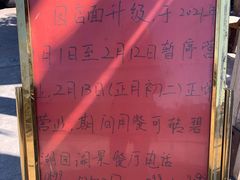 因店面升级,于2021年
月1日至2月12日暂停营
业,2月13日(正月初二)正常
营业,期间用餐可转碧
湖园湖景餐厅电话